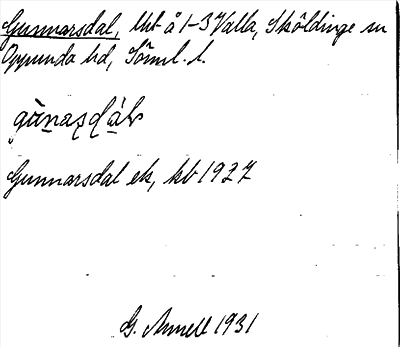 Gunnarsdal, lht å 1-3 Valla, Sköldinge sn
Oppunda hd, Söml. l.
Gunnarsdal ek, kb 1927
G. Annell 1931